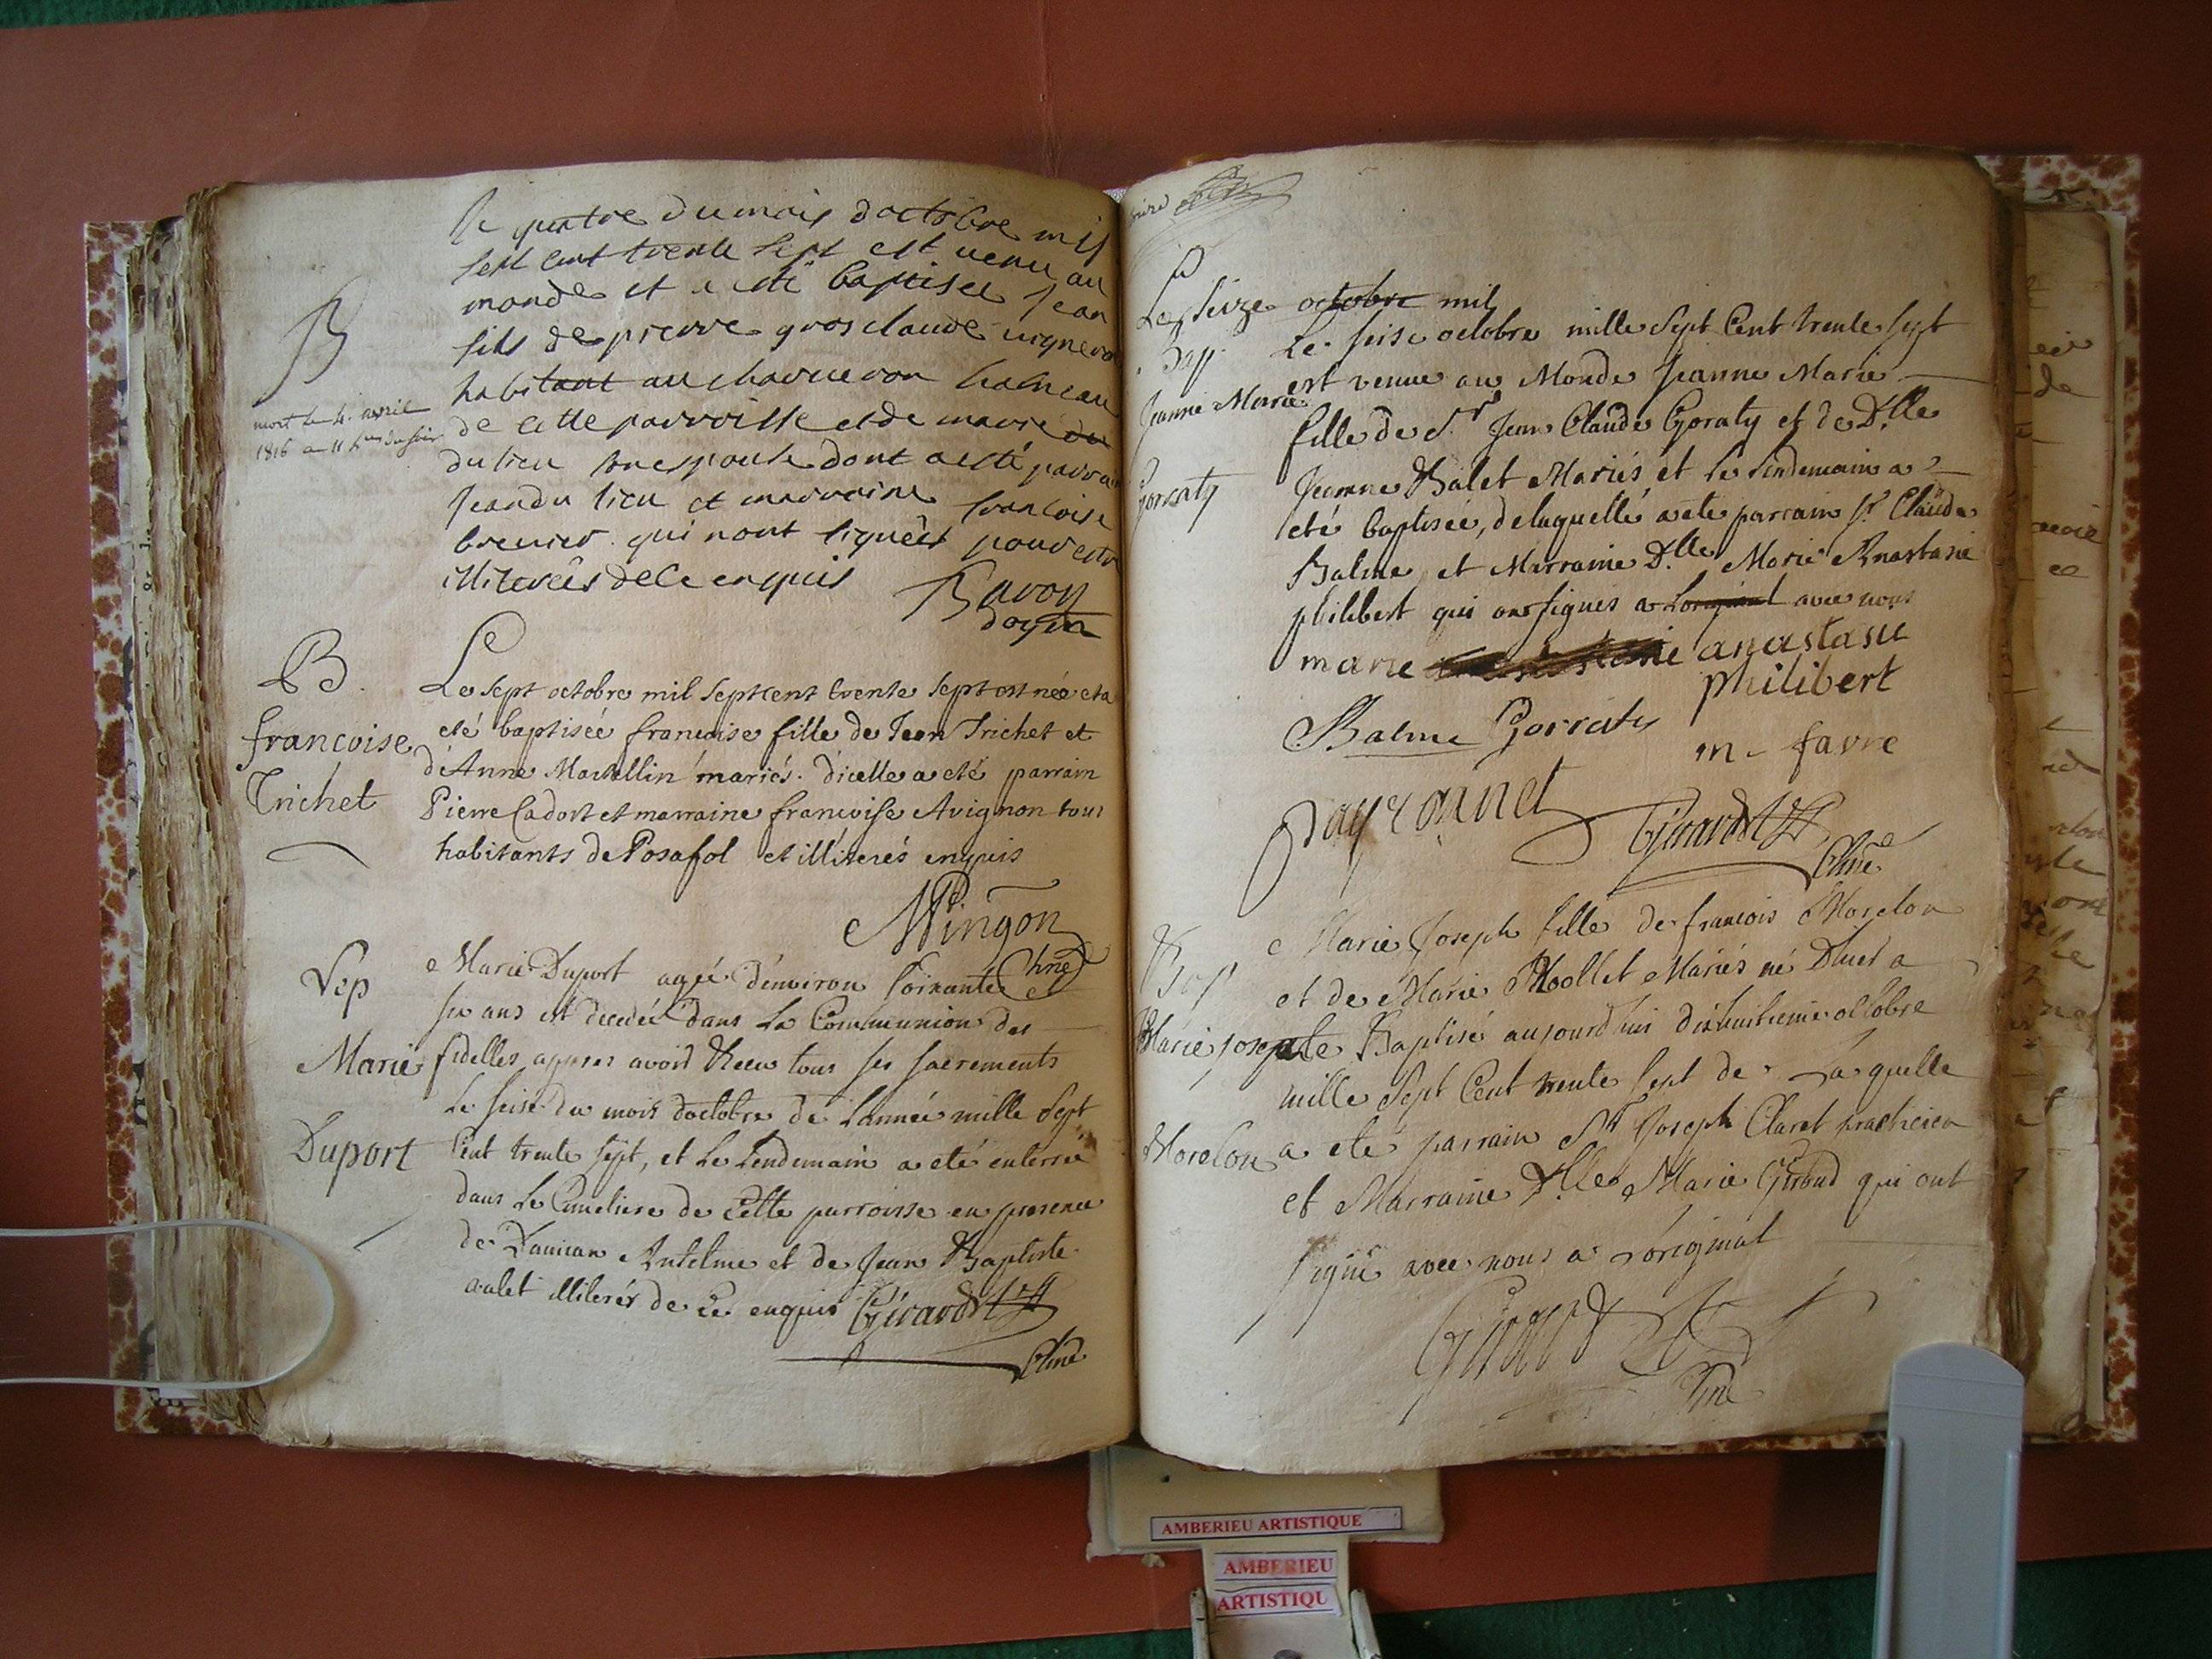 B
mort le 4. avril
1816 a 11 h. du soir
le quatre du mois doctobre mil
sept cent trente sept est venu au
monde et a esté baptisee jean
fils de pierre gros claude vigneron
habitant au charveron hameau
de cette parroisse et de marie du
du lieu son espouse dont a esté parrain
jean du lieu et marraine francoise
brenier qui nont signêes pour estre
illiterêes de ce enquis
Ravon
doyen
B.
francoise
Trichet
Le sept octobre mil sept cent trente sept est née et a
eté baptisée francoise fille de Jean Trichet et
d'Anne Martellin mariés. d'icelle a eté parrain
Pierre Cadort et marraine francoise Avignon tous
habitants de Posafol et illiterés enquis
MPingon
Chne
Sep
Marie
Duport
Marie Duport agée d'environ soixante
six ans est decedée dans la Communion des
fidelles, appres avoir Receu tous ses sacrements
Le seise du mois doctobre de Lannée mille Sept
Cent trente sept, et Le Lendemain a eté enterrée
dans Le Cimetiere de Cette parroisse en presence
de Damian Antelme et de Jean Baptiste
valet illiterés de Ce enquis Girard
Chne
Le seize octobre mil
Bap
Jeanne Marie
Gorraty
Le seise octobre mille Sept Cent trente Sept
est venue au Monde Jeanne Marie
fille de Sr Jean Claude Goraty et de D.lle
Jeanne Balet Mariés et Le Lendemain a
eté baptisée, de laquelle a ete parrain Sr Claude
Balme et Marraine D.lle Marie Anastasie
philibert qui ont signes a Loriginal avec nous
marie anastasie
philibert
Balme Gorraty
m favre
Girard
Chne
Bap
Marie josepte
Morelon
Marie Joseph fille de francois Morelon
et de Marie Mollet Mariés né D'huer a
eté Baptisé aujourd'hui dixhuitieme octobre
mille Sept Cent trente Sept de Laquelle
a ete parrain Sr Joseph Claret praticien
et Marraine D.lle Marie Giroud qui ont
signé avec nous a Loriginal
Girard
Chne
AMBERIEU ARTISTIQUE
AMBERIEU
ARTISTIQU